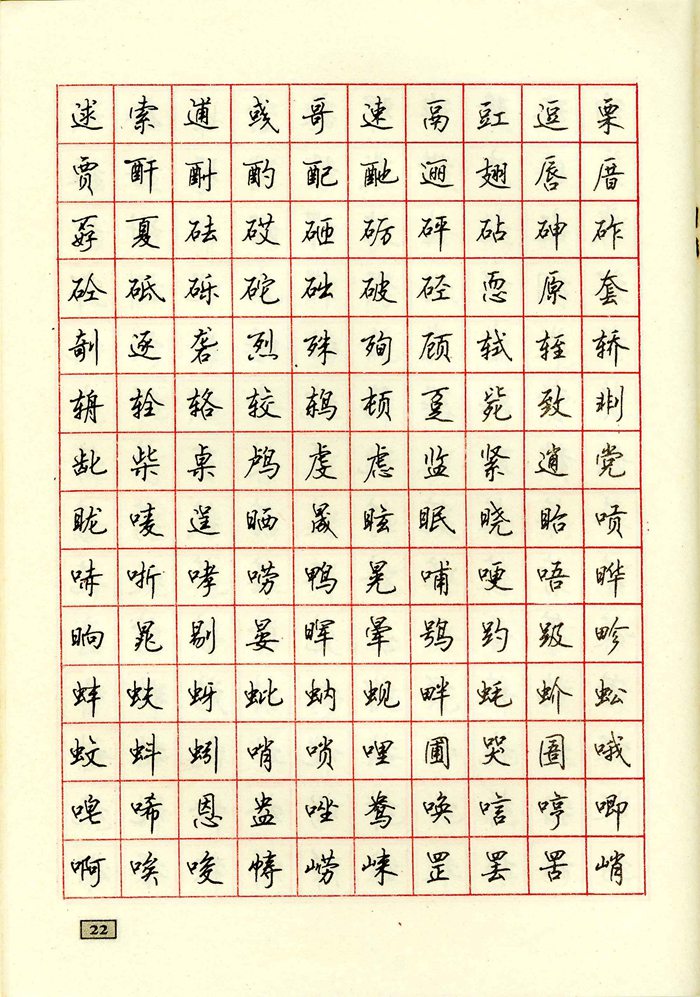 逑索逋彧哥速鬲豇逗栗
贾酐酎酌配酏逦翅唇厝
孬夏砝砹砸砺砰砧砷砟
砼砥砾砣础破硁恧原套
剞逐砻烈殊殉顾轼轾轿
辀辁辂较鸫顿趸毙致剕
龀柴桌鸬虔虑监紧逍党
眬唛逞晒晟眩眠晓眙唝
哧哳哮唠鸭晃哺哽唔晔
晌晁剔晏晖晕鸮趵趿畛
蚌蚨蚜蚍蚋蚬畔蚝蚧蚣
蚊蚪蚓哨唢哩圃哭圄哦
唣唏恩盎唑鸯唤唁哼唧
啊唉唆帱崂崃罡罢罟峭
22